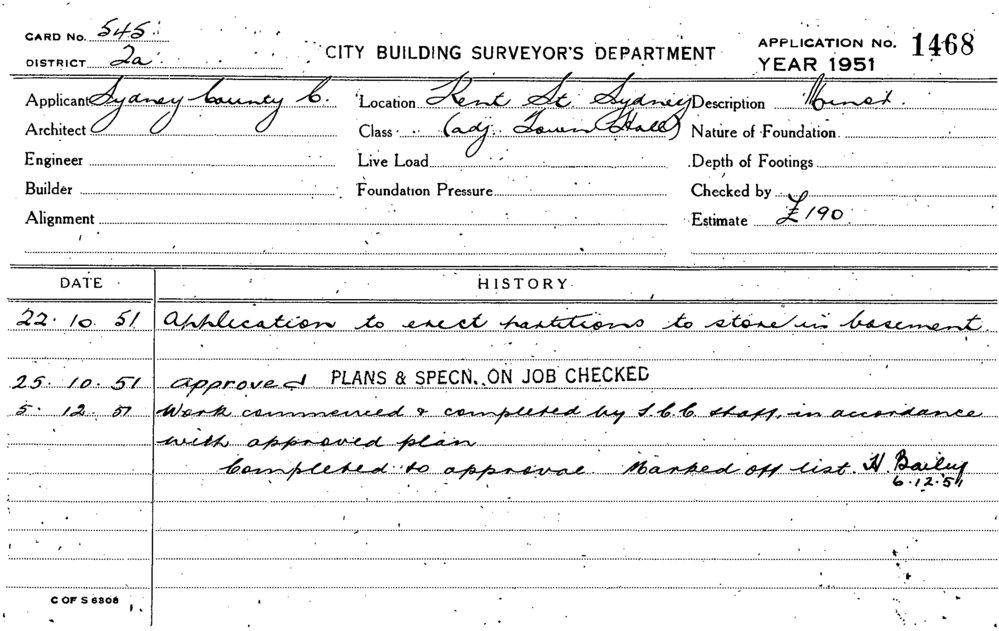 CARD No. 545
DISTRICT 2a
CITY BUILDING SURVEYOR'S DEPARTMENT
APPLICATION No. 1468
YEAR 1951
Applicant Sydney County C. Location Kent St Sydney Description
Architect Class (adj. Town Hall) Nature of Foundation
Engineer Live Load Depth of Footings
Builder Foundation Pressure Checked by
Alignment Estimate £190
DATE HISTORY
22.10.51 Application to erect partitions to store in basement.
25.10.51 Approved PLANS & SPECN. ON JOB CHECKED
5.12.51 Work commenced & completed by S.C.C. staff, in accordance
with approved plan
Completed to approval. Marked off list. H. Bailey
6.12.51
C OF S 6306